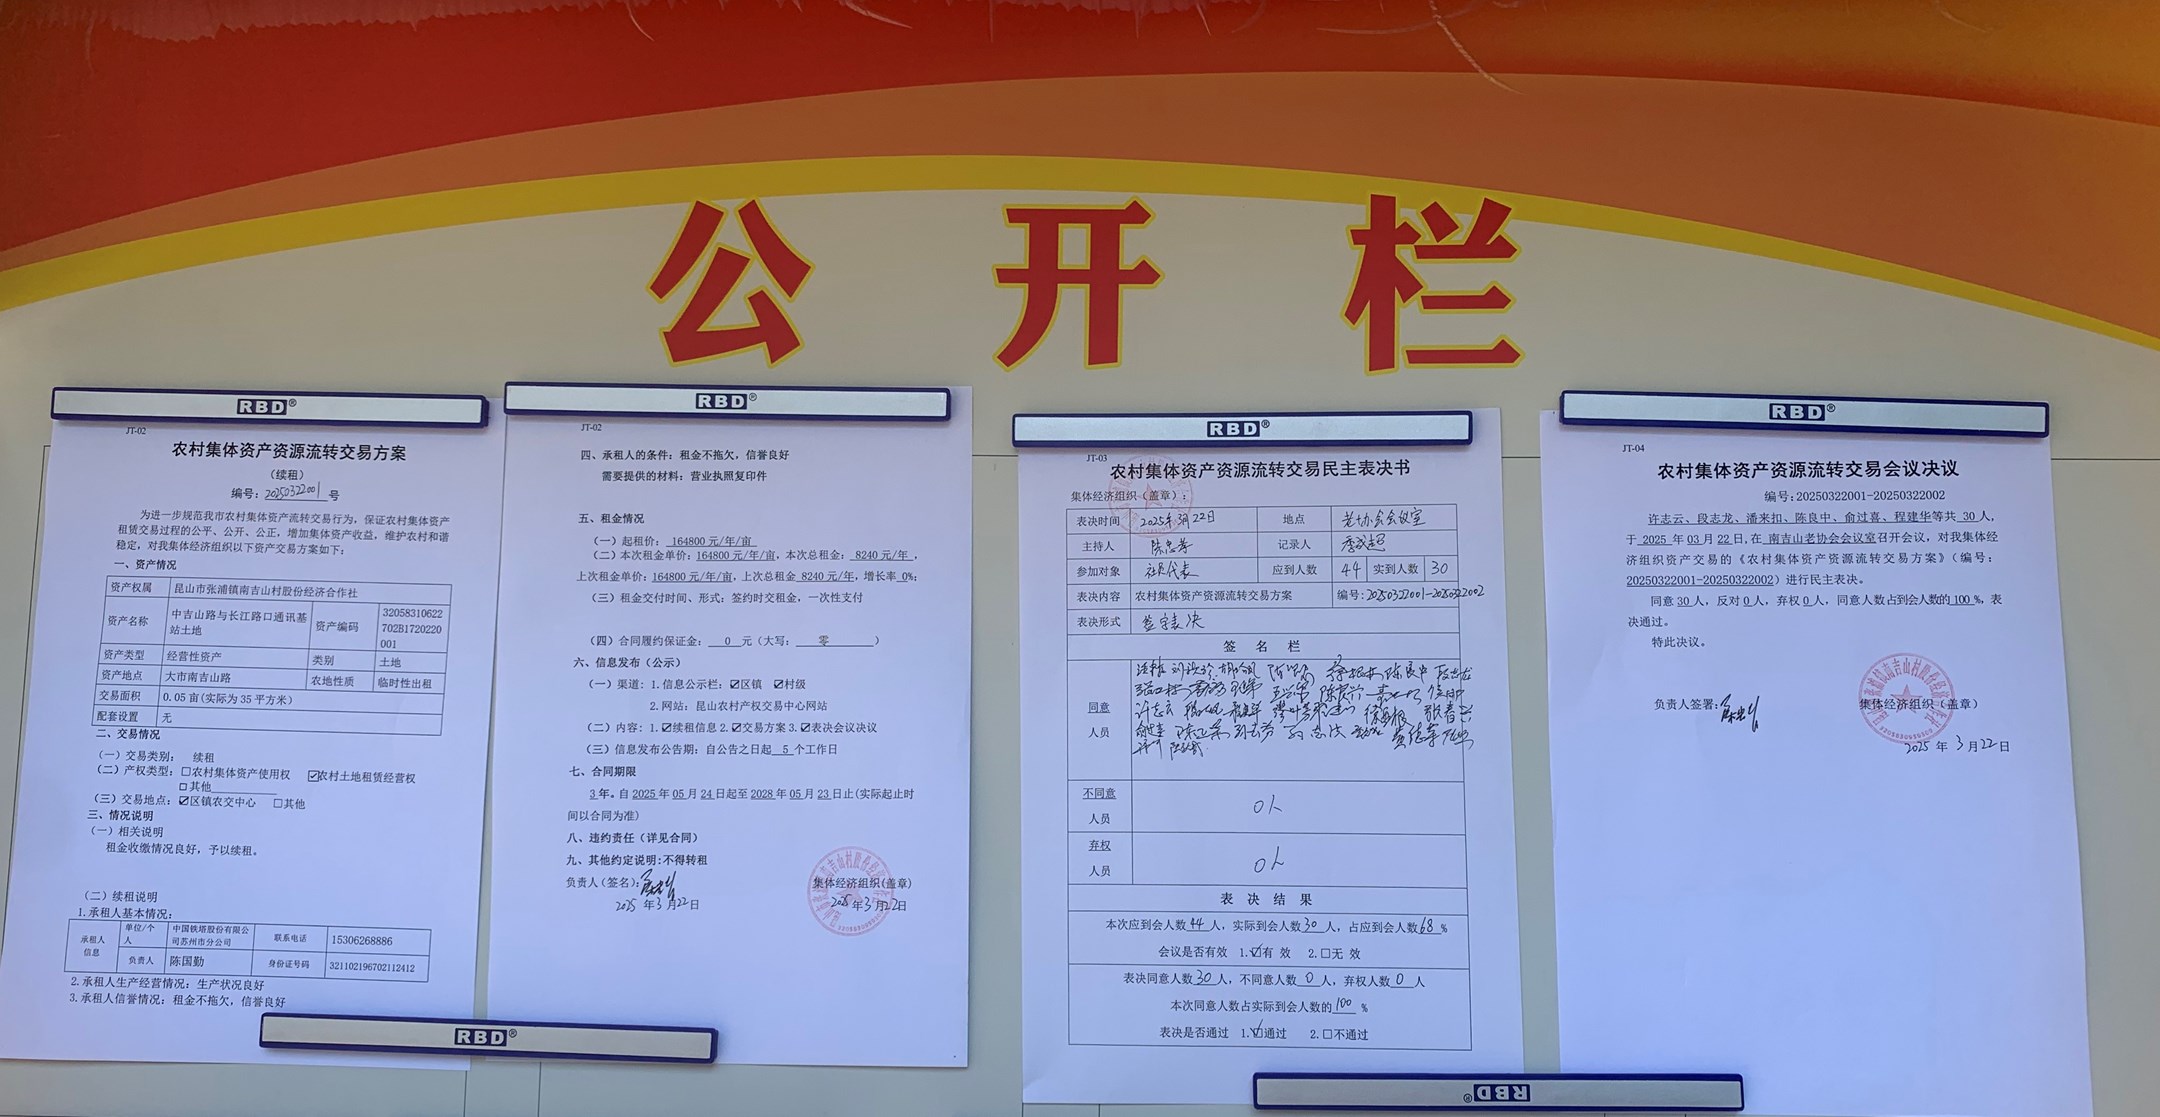 公开栏
RBD®
JT-02
农村集体资产资源流转交易方案
(续租)
编号：20250322001号
为进一步规范我市农村集体资产流转交易行为，保证农村集体资产
租赁交易过程的公平、公开、公正，增加集体资产收益，维护农村和谐
稳定，对我集体经济组织以下资产交易方案如下：
一、资产情况
资产权属 昆山市张浦镇南吉山村股份经济合作社
资产名称 中吉山路与长江路口通讯基站土地 资产编码 32058310622702B1720220001
资产类型 经营性资产 类别 土地
资产地点 大市南吉山路 农地性质 临时性出租
交易面积 0.05亩(实际为35平方米)
配套设置 无
二、交易情况
(一)交易类别： 续租
(二)产权类型：□农村集体资产使用权 ☑农村土地租赁经营权
□其他
(三)交易地点：☑区镇农交中心 □其他
三、情况说明
(一)相关说明
租金收缴情况良好，予以续租。
(二)续租说明
1.承租人基本情况：
承租人信息 单位/个人 中国铁塔股份有限公司苏州市分公司 联系电话 15306268886
负责人 陈国勤 身份证号码 321102196702112412
2.承租人生产经营情况：生产状况良好
3.承租人信誉情况：租金不拖欠，信誉良好
RBD®
RBD®
JT-02
四、承租人的条件：租金不拖欠，信誉良好
需要提供的材料：营业执照复印件
五、租金情况
(一)起租价： 164800元/年/亩
(二)本次租金单价：164800元/年/亩，本次总租金： 8240元/年，
上次租金单价：164800元/年/亩，上次总租金 8240元/年，增长率 0%；
(三)租金交付时间、形式：签约时交租金，一次性支付
(四)合同履约保证金： 0 元(大写： 零 )
六、信息发布(公示)
(一)渠道：1.信息公示栏：☑区镇 ☑村级
2.网站：昆山农村产权交易中心网站
(二)内容：1.☑续租信息2.☑交易方案3.☑表决会议决议
(三)信息发布公告期：自公告之日起 5 个工作日
七、合同期限
3年。自2025年05月24日起至2028年05月23日止(实际起止时
间以合同为准)
八、违约责任(详见合同)
九、其他约定说明：不得转租
负责人(签名)：
集体经济组织(盖章)
2025年3月22日
2025年3月22日
RBD®
JT-03
农村集体资产资源流转交易民主表决书
集体经济组织(盖章)：
表决时间 2025年3月22日 地点 老协会会议室
主持人 记录人
参加对象 社员代表 应到人数 44 实到人数 30
表决内容 农村集体资产资源流转交易方案 编号：20250322001-20250322002
表决形式 签字表决
签名栏
同意
人员
不同意
人员 0人
弃权
人员 0人
表决结果
本次应到会人数44人，实际到会人数30人，占应到会人数68%
会议是否有效 1.☑有效 2.□无效
表决同意人数30人，不同意人数0人，弃权人数0人
本次同意人数占实际到会人数的100%
表决是否通过 1.☑通过 2.□不通过
RBD®
RBD®
JT-04
农村集体资产资源流转交易会议决议
编号：20250322001-20250322002
许志云、段志龙、潘来扣、陈良中、俞过喜、程建华等共30人，
于2025年03月22日，在南吉山老协会会议室召开会议，对我集体经
济组织资产交易的《农村集体资产资源流转交易方案》(编号：
20250322001-20250322002)进行民主表决。
同意30人，反对0人，弃权0人，同意人数占到会人数的100%，表
决通过。
特此决议。
负责人签署：
集体经济组织(盖章)
2025年3月22日